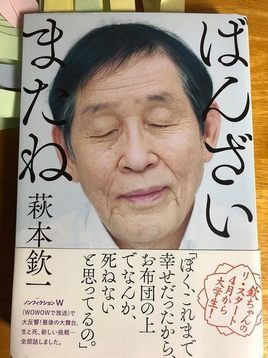 ばんざい
またね
萩本欽一
「ぼく、これまで
幸せだったから、
お布団の上
でなんか、
死ねない
と思ってるの。」
欽ちゃんの
リ・スタート
4月から
大学生!
ノンフィクションW
(WOWOWで放送)で
大反響!最後の大舞台、
生と死、新しい挑戦…
全部話しました。